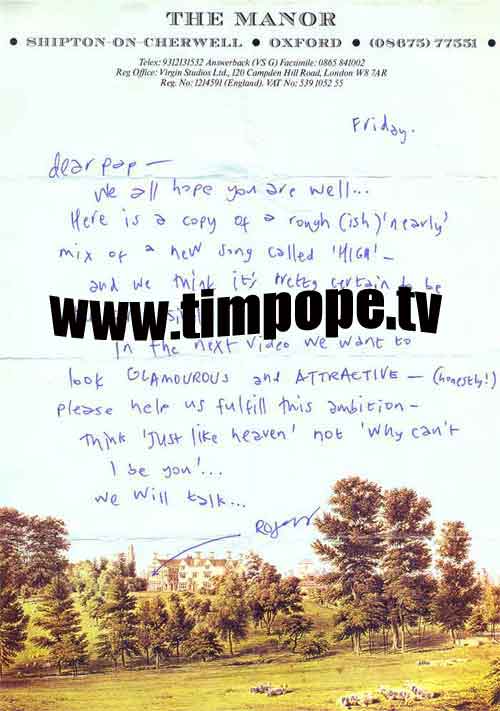 THE MANOR
• SHIPTON-ON-CHERWELL • OXFORD • (08675) 77551 •
Telex: 9312131532 Answerback (VS G) Facsimile: 0865 841002
Reg Office: Virgin Studios Ltd., 120 Campden Hill Road, London W8 7AR
Reg. No: 1214591 (England). VAT No: 539 1052 55
Friday.
dear pap —
we all hope you are well...
Here is a copy of a rough (ish) 'nearly'
mix of a new song called 'HIGH' —
and we think it's pretty certain to be
www.timpope.tv
In the next video we want to
look GLAMOUROUS and ATTRACTIVE — (honestly!)
please help us fulfill this ambition —
think 'just like heaven' not 'why can't
I be you'...
we will talk...